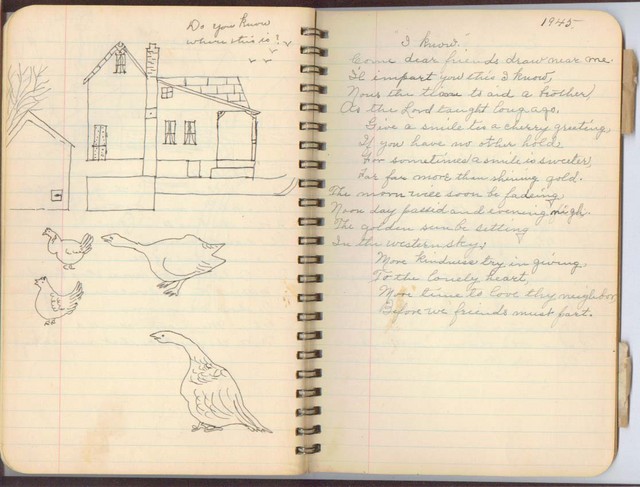 Do you know
where this is!
1945
"I know."
Come dear friends draw near me.
I'll impart you this I know,
Now's the time to aid a brother,
As the Lord taught long ago.
Give a smile tis a cherry greeting
If you have no other hold.
For sometimes a smile is sweeter,
Far far more than shining gold.
The morn will soon be fadeing,
Noon day passed and evening nigh.
The golden sun be setting
In the western sky.
More kindness try in giving
To the lonely heart,
More time to love thy neighbor
Before we friends must part.